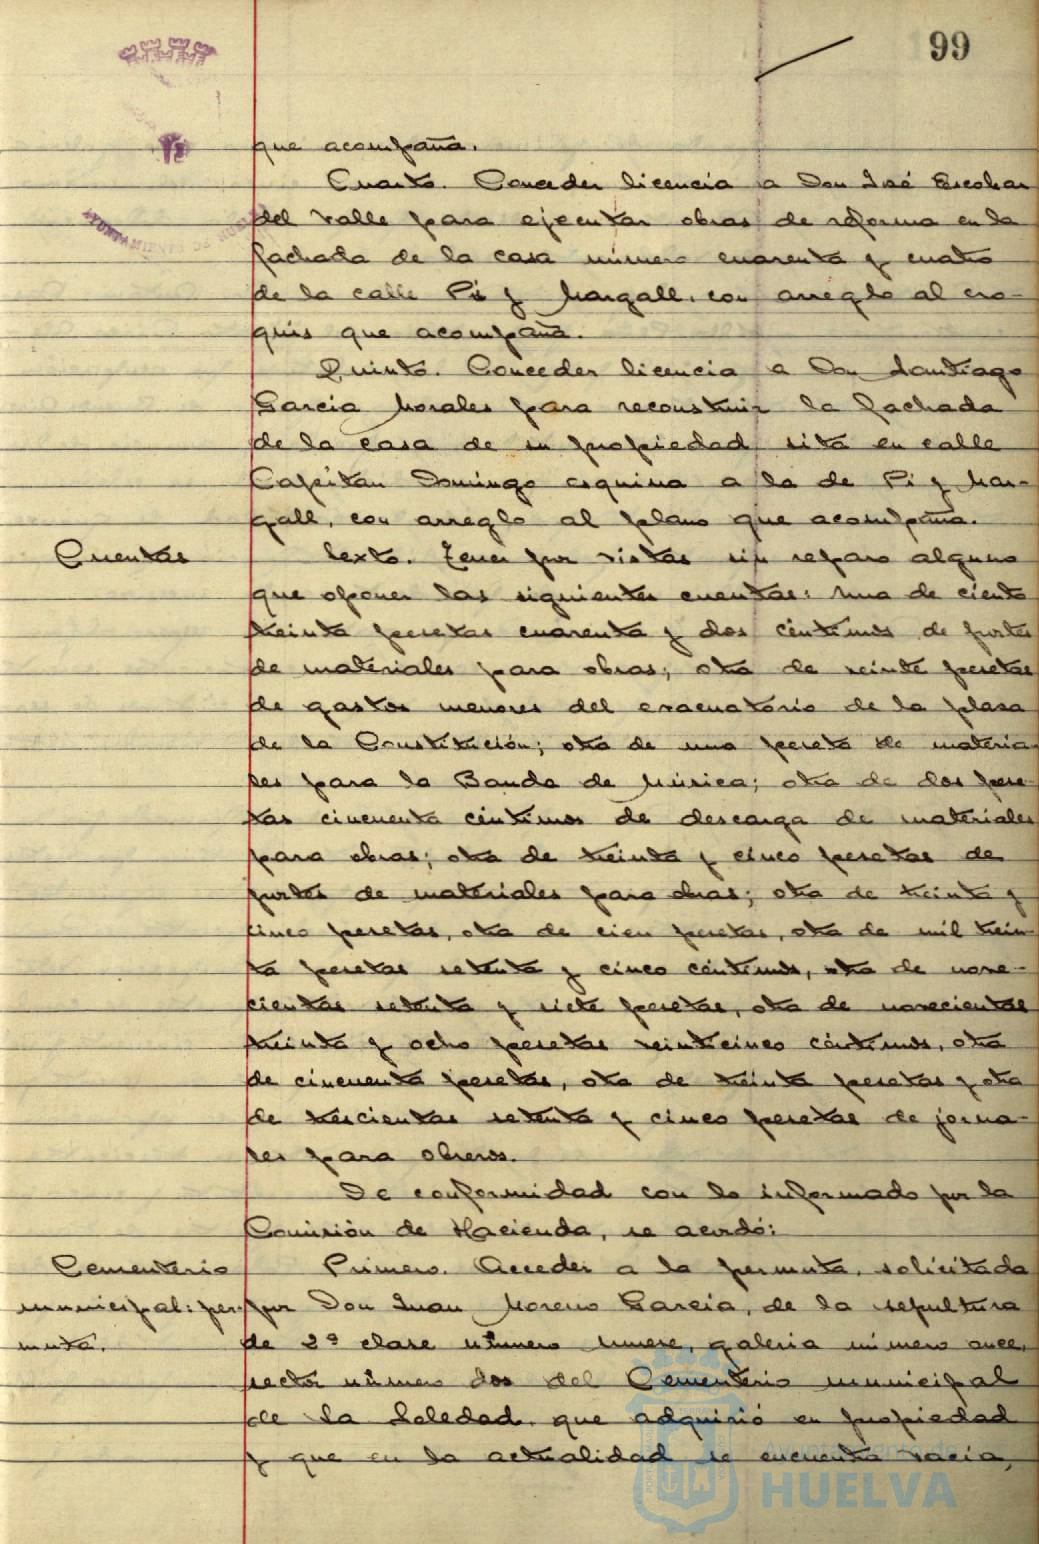 99
que acompaña.
Cuarto. Conceder licencia a Don José Escobar
del Valle para ejecutar obras de reforma en la
fachada de la casa número cuarenta y cuatro
de la calle Pi y Margall, con arreglo al cro-
quis que acompaña.
Quinto. Conceder licencia a Don Santiago
García Morales para reconstruir la fachada
de la casa de su propiedad sita en calle
Capitan Domingo esquina a la de Pi y Mar-
gall, con arreglo al plano que acompaña.
Cuentas
Sexto. Tener por vistas sin reparo alguno
que oponer las siguientes cuentas: una de ciento
treinta pesetas cuarenta y dos céntimos de portes
de materiales para obras; otra de veinte pesetas
de gastos menores del evacuatorio de la plaza
de la Constitución; otra de una peseta de materia-
les para la Banda de Música; otra de dos pese-
tas cincuenta céntimos de descarga de materiales
para obras; otra de treinta y cinco pesetas de
portes de materiales para obras; otra de treinta y
cinco pesetas, otra de cien pesetas, otra de mil trein-
ta pesetas setenta y cinco céntimos, otra de nove-
cientas setenta y siete pesetas, otra de novecientas
treinta y ocho pesetas veinticinco céntimos, otra
de cincuenta pesetas, otra de treinta pesetas y otra
de trescientas setenta y cinco pesetas de jorna-
les para obreros.
De conformidad con lo informado por la
Comisión de Hacienda, se acordó:
Cementerio
municipal: per-
muta.
Primero. Acceder a la permuta, solicitada
por Don Juan Moreno García, de la sepultura
de 2ª clase número nueve, galeria número once,
sector número dos del Cementerio municipal
de la Soledad, que adquirió en propiedad
y que en la actualidad se encuentra vacía,
Ayuntamiento de
HUELVA